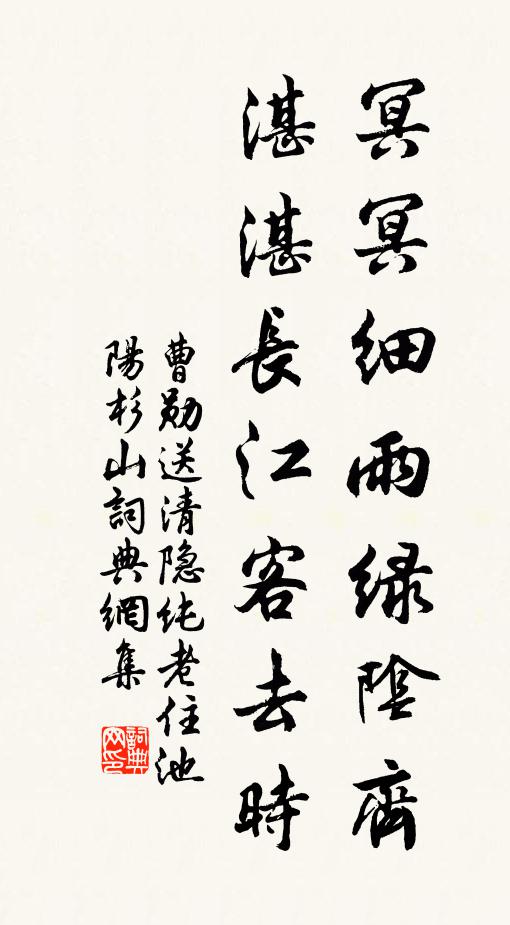 冥冥細雨緑陰齊
湛湛長江客去時
曹勛送清隐純老住池
陽杉山詞典網集
詞典网印